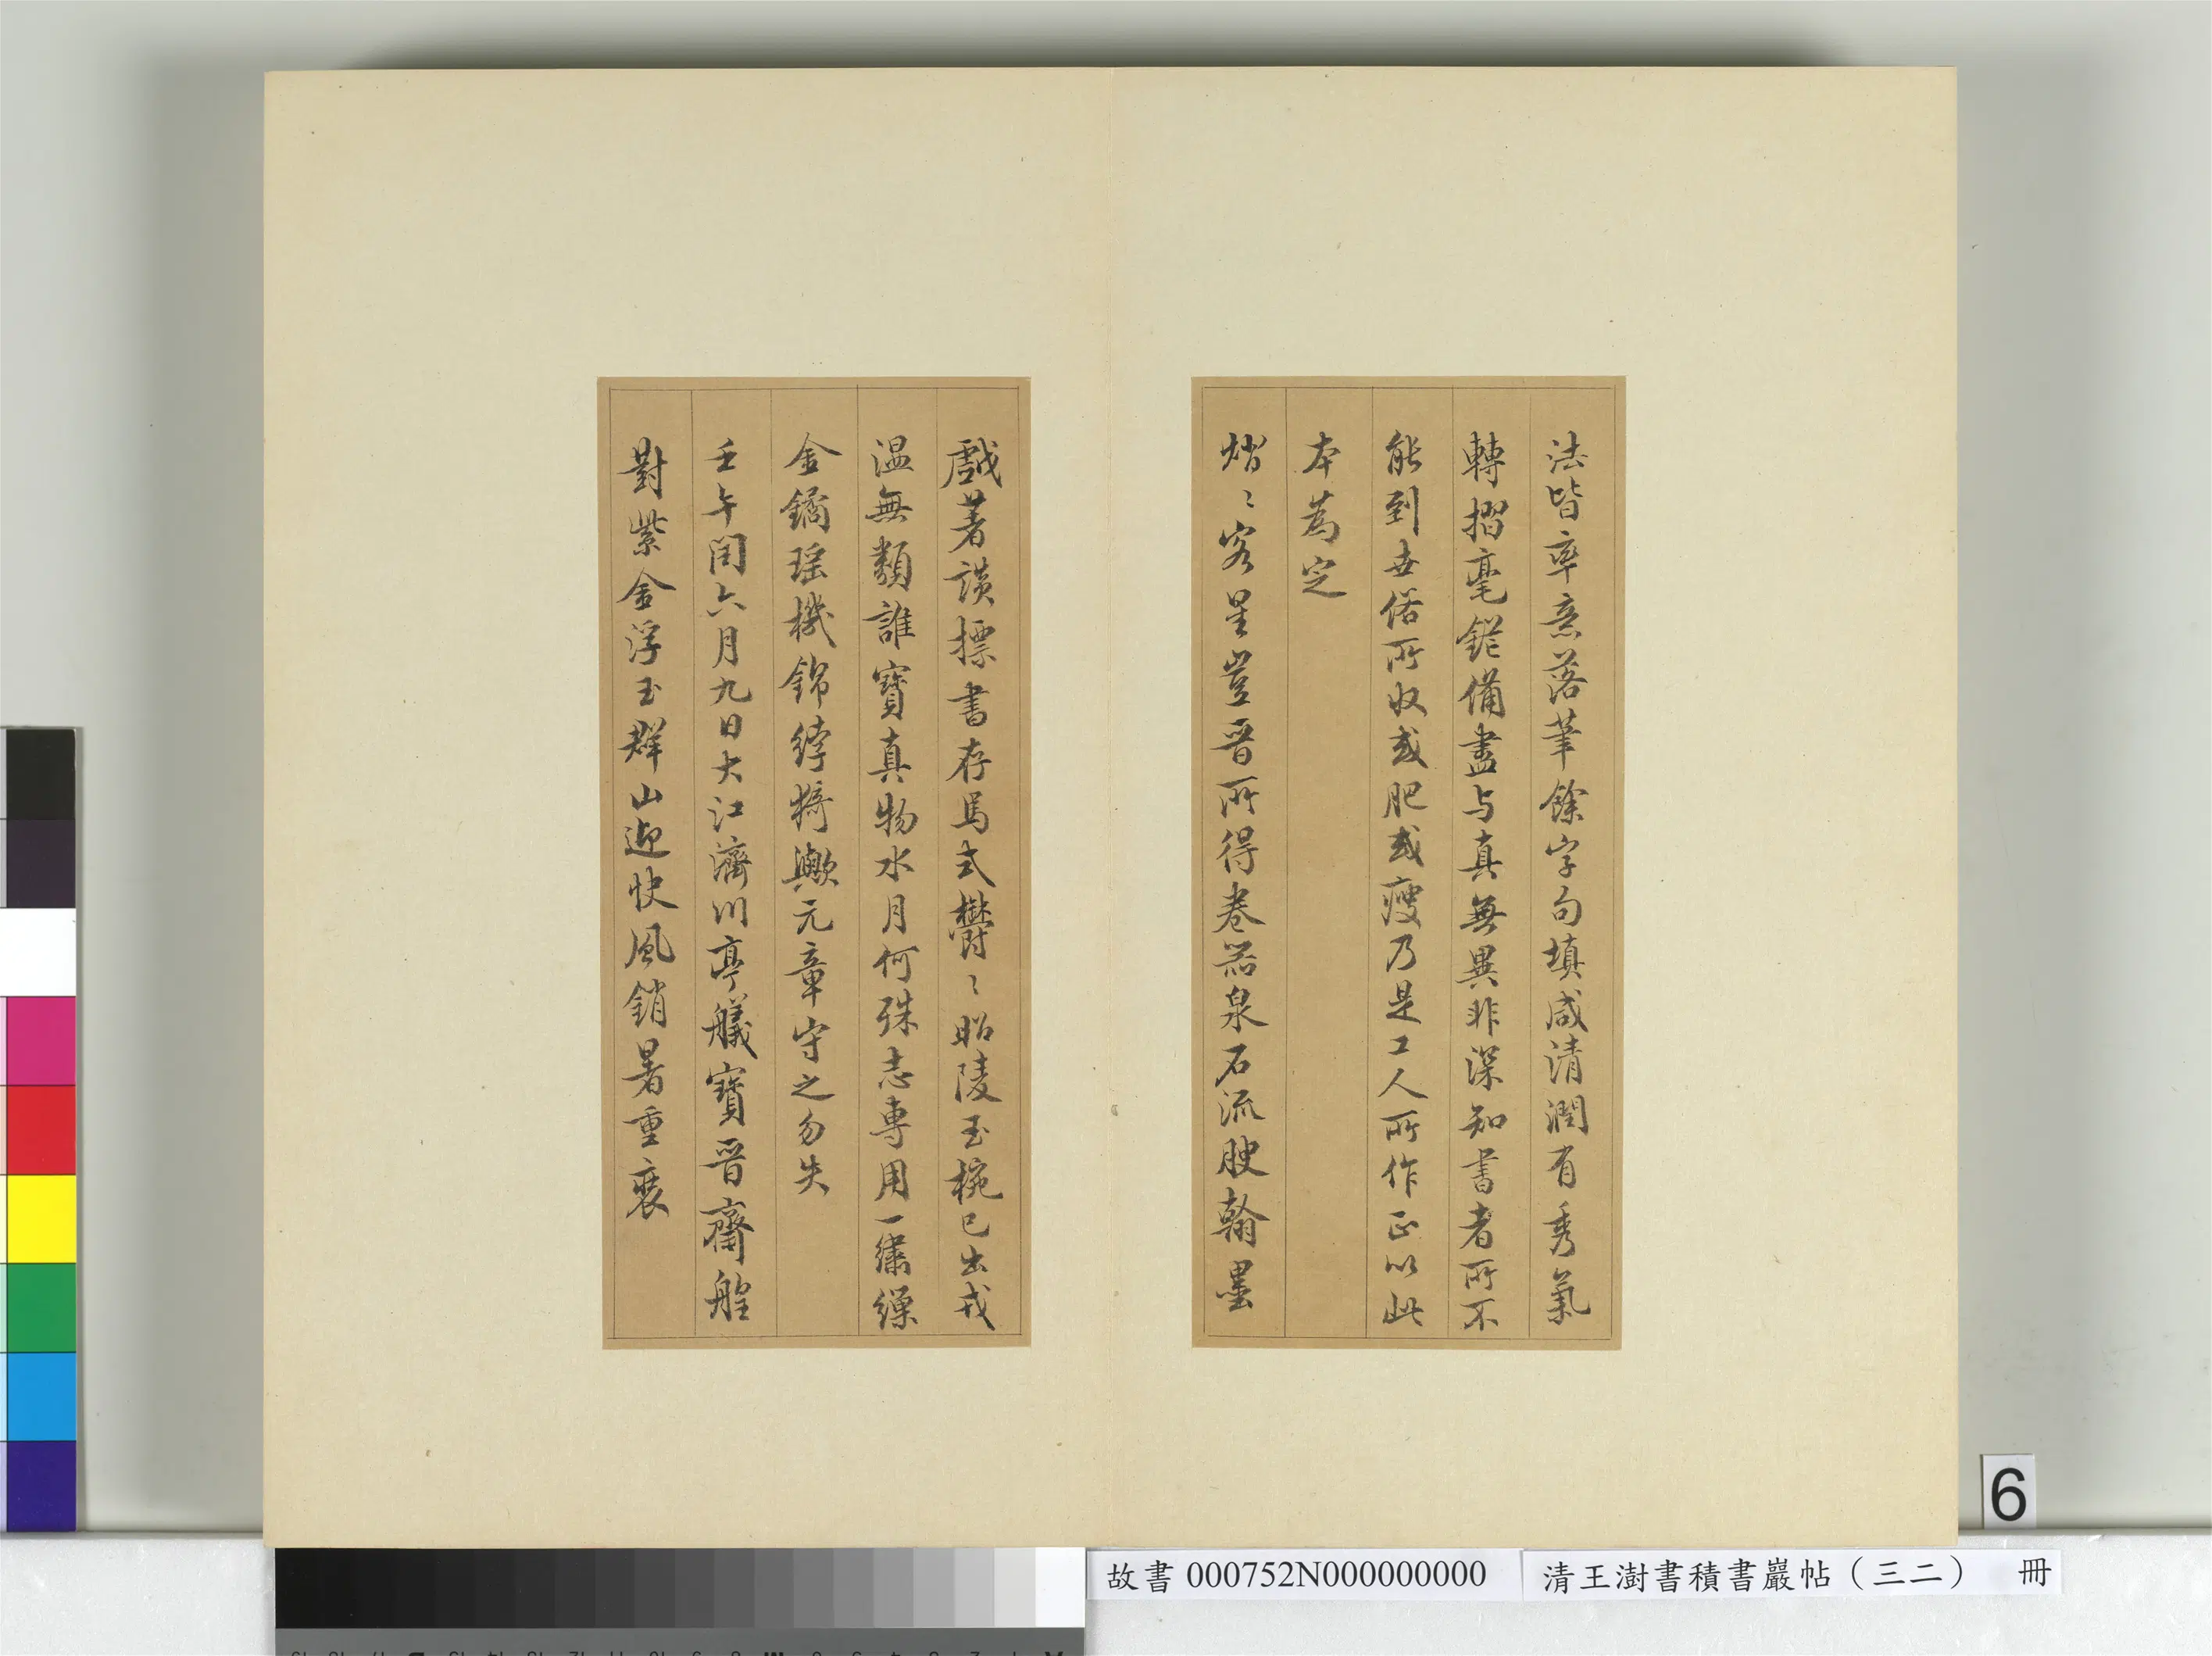 法皆率意落筆餘字句填咸清潤有秀氣
轉摺毫鋩備盡与真無異非深知書者所不
能到世俗所收或肥或瘦乃是工人所作正以此
本為定
熠〻客星豈晉所得卷器泉石流腴翰墨
戲著談標書存馬式鬱〻昭陵玉椀已出戎
温無類誰寶真物水月何殊志專用一繡繅
金鐍瑶機錦綍猗歟元章守之勿失
壬午閏六月九日大江濟川亭艤寶晉齋艎
對紫金浮玉群山迎快風銷暑重裝
6
故書 000752N000000000
清王澍書積書巖帖（三二） 冊